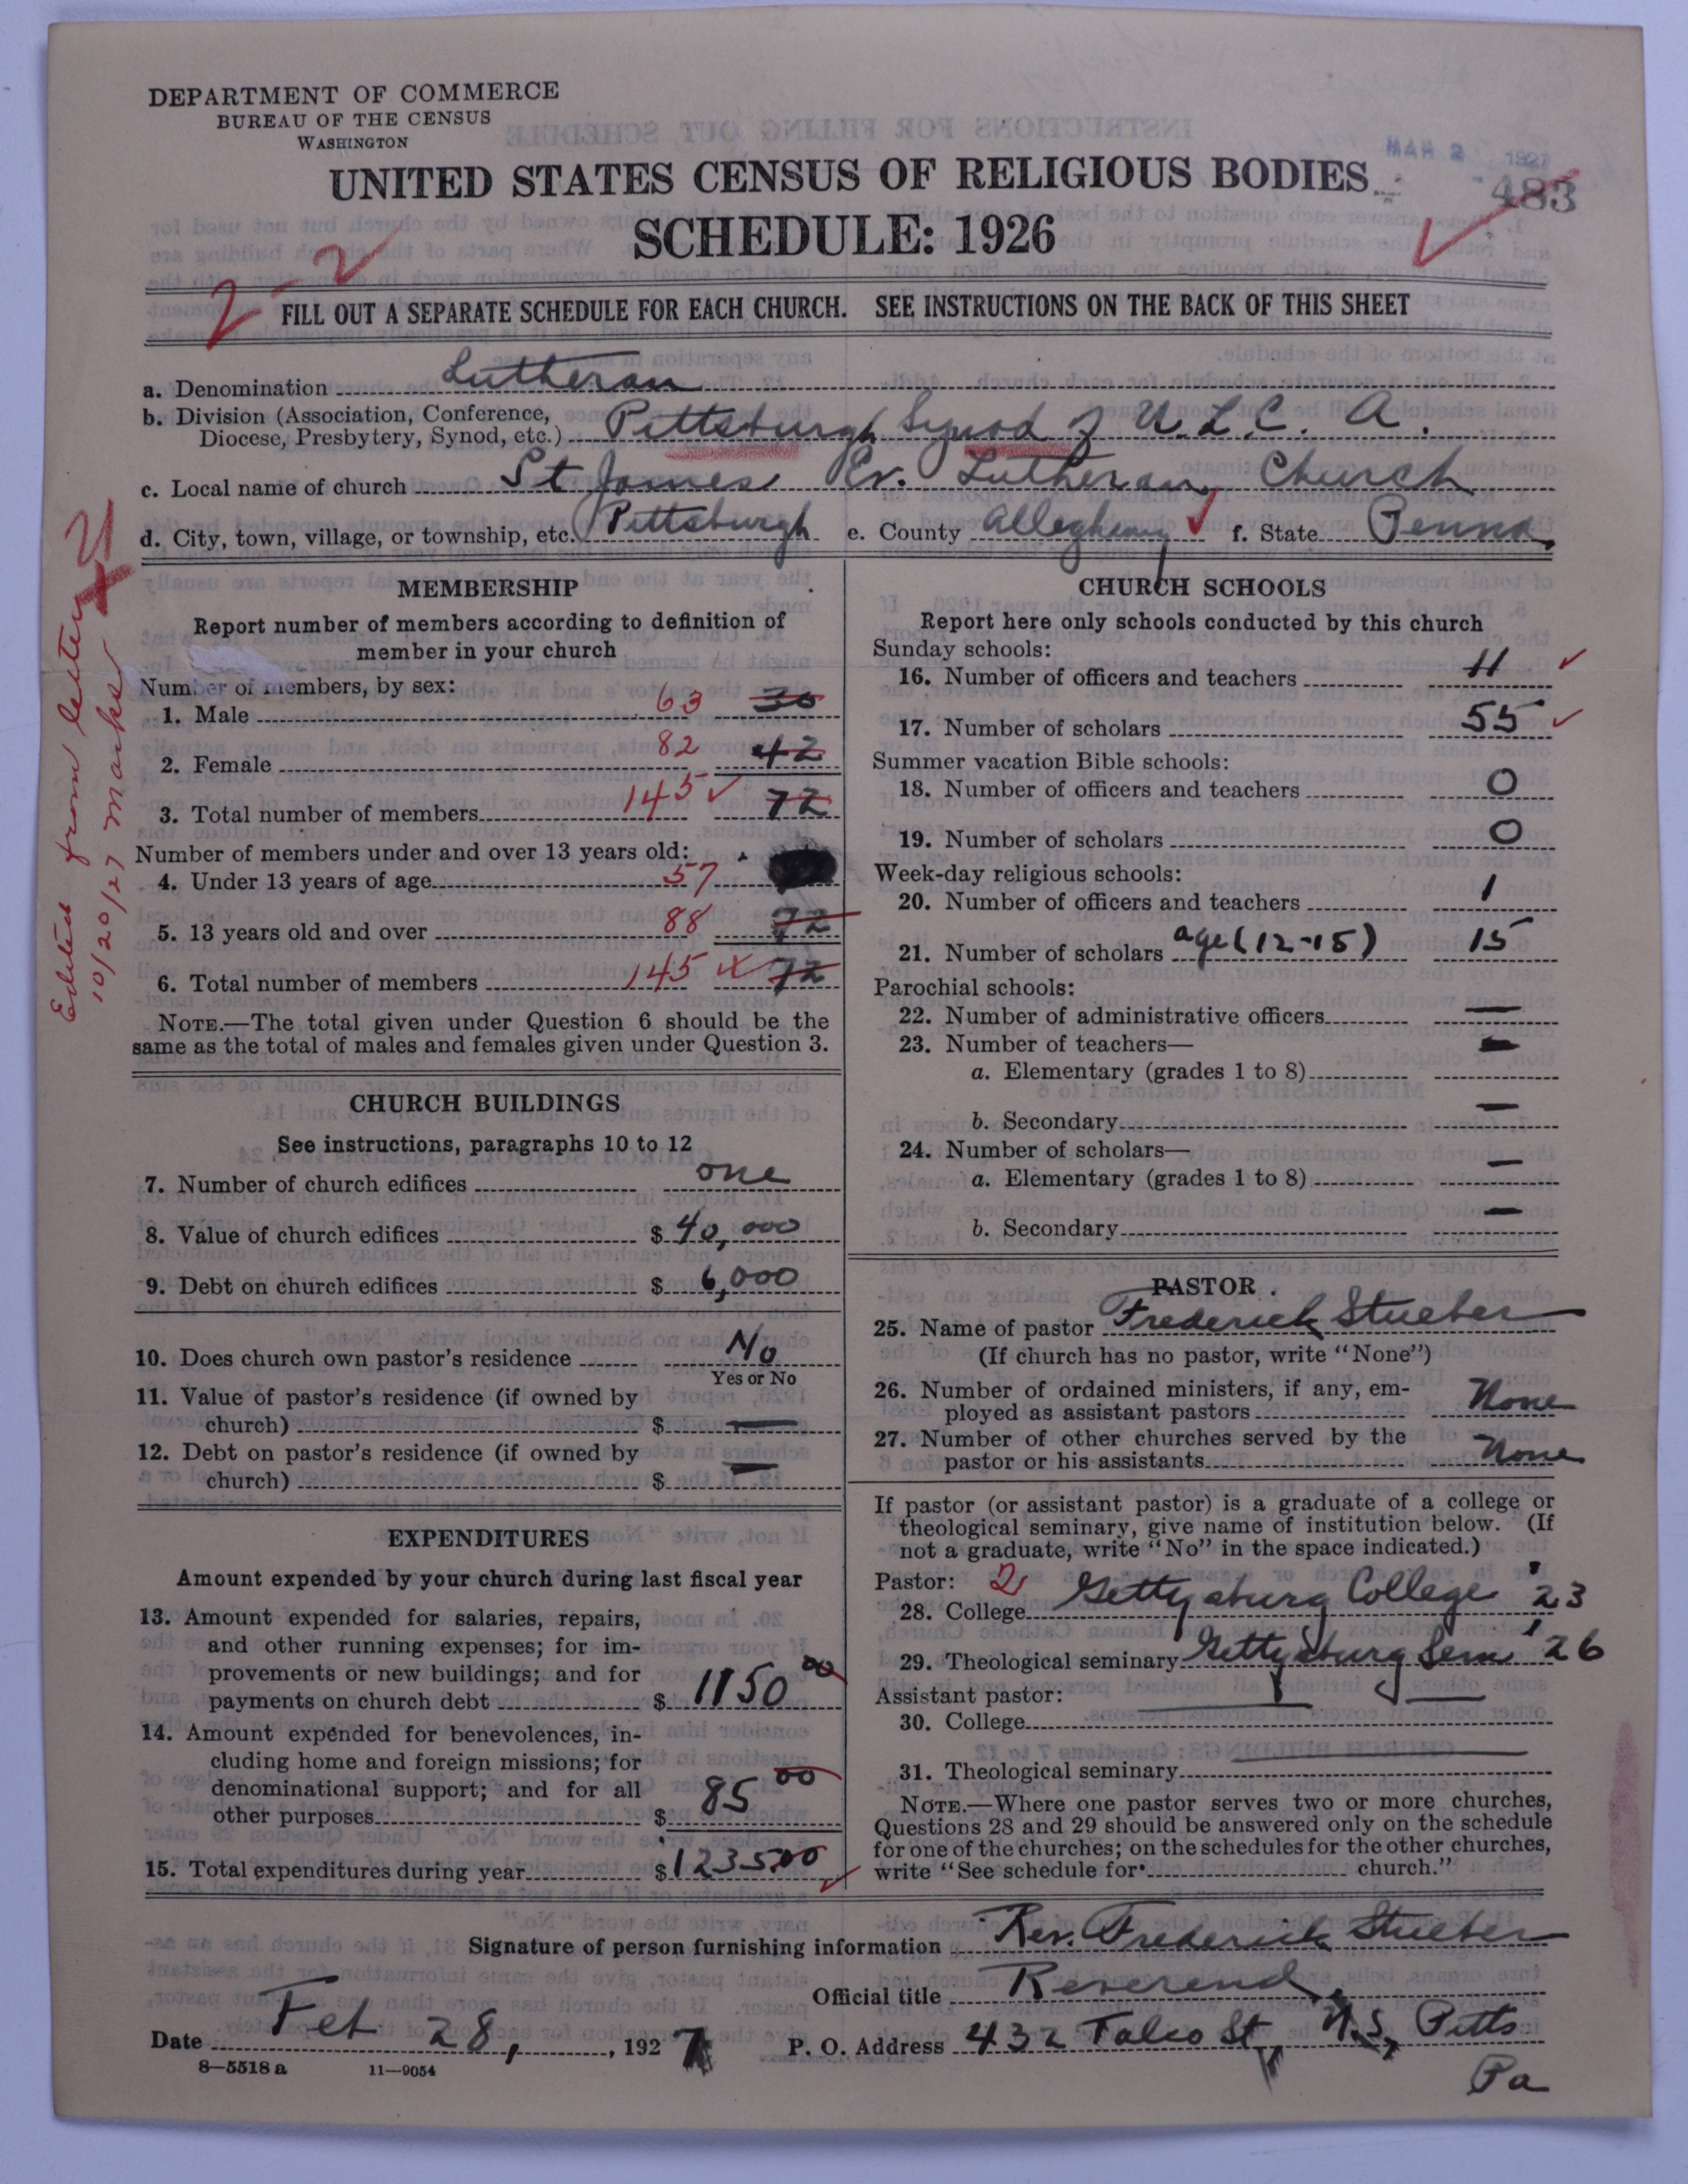 DEPARTMENT OF COMMERCE
BUREAU OF THE CENSUS
WASHINGTON
UNITED STATES CENSUS OF RELIGIOUS BODIES
MAR 2 1927
483
SCHEDULE: 1926
2-2
FILL OUT A SEPARATE SCHEDULE FOR EACH CHURCH. SEE INSTRUCTIONS ON THE BACK OF THIS SHEET
a. Denomination Lutheran
b. Division (Association, Conference, Diocese, Presbytery, Synod, etc.) Pittsburgh Synod of U.L.C.A.
c. Local name of church St James Ev. Lutheran Church
d. City, town, village, or township, etc. Pittsburgh e. County Allegheny f. State Penna.
Edited from letter
10/20/27 Marks
MEMBERSHIP
Report number of members according to definition of
member in your church
Number of members, by sex:
1. Male 63 30
2. Female 82 42
3. Total number of members 145 72
Number of members under and over 13 years old:
4. Under 13 years of age 57
5. 13 years old and over 88 72
6. Total number of members 145 72
NOTE.—The total given under Question 6 should be the
same as the total of males and females given under Question 3.
CHURCH BUILDINGS
See instructions, paragraphs 10 to 12
7. Number of church edifices one
8. Value of church edifices $ 40,000
9. Debt on church edifices $ 6,000
10. Does church own pastor's residence No
Yes or No
11. Value of pastor's residence (if owned by
church) $ —
12. Debt on pastor's residence (if owned by
church) $ —
EXPENDITURES
Amount expended by your church during last fiscal year
13. Amount expended for salaries, repairs,
and other running expenses; for im-
provements or new buildings; and for
payments on church debt $ 1150 00
14. Amount expended for benevolences, in-
cluding home and foreign missions; for
denominational support; and for all
other purposes $ 85 00
15. Total expenditures during year $ 1235.00
CHURCH SCHOOLS
Report here only schools conducted by this church
Sunday schools:
16. Number of officers and teachers 11
17. Number of scholars 55
Summer vacation Bible schools:
18. Number of officers and teachers 0
19. Number of scholars 0
Week-day religious schools:
20. Number of officers and teachers 1
21. Number of scholars age (12-15) 15
Parochial schools:
22. Number of administrative officers —
23. Number of teachers— —
a. Elementary (grades 1 to 8)
b. Secondary —
24. Number of scholars—
a. Elementary (grades 1 to 8) —
b. Secondary —
PASTOR
25. Name of pastor Frederick Stueber
(If church has no pastor, write "None")
26. Number of ordained ministers, if any, em-
ployed as assistant pastors None
27. Number of other churches served by the
pastor or his assistants None
If pastor (or assistant pastor) is a graduate of a college or
theological seminary, give name of institution below. (If
not a graduate, write "No" in the space indicated.)
Pastor: 2
28. College Gettysburg College '23
29. Theological seminary Gettysburg Sem '26
Assistant pastor:
30. College
31. Theological seminary
NOTE.—Where one pastor serves two or more churches,
Questions 28 and 29 should be answered only on the schedule
for one of the churches; on the schedules for the other churches,
write "See schedule for church."
Signature of person furnishing information Rev. Frederick Stueber
Official title Reverend
Date Feb 28, 1927 P. O. Address 432 Talco St, N.S, Pitts
Pa
8-5518 a 11—9054